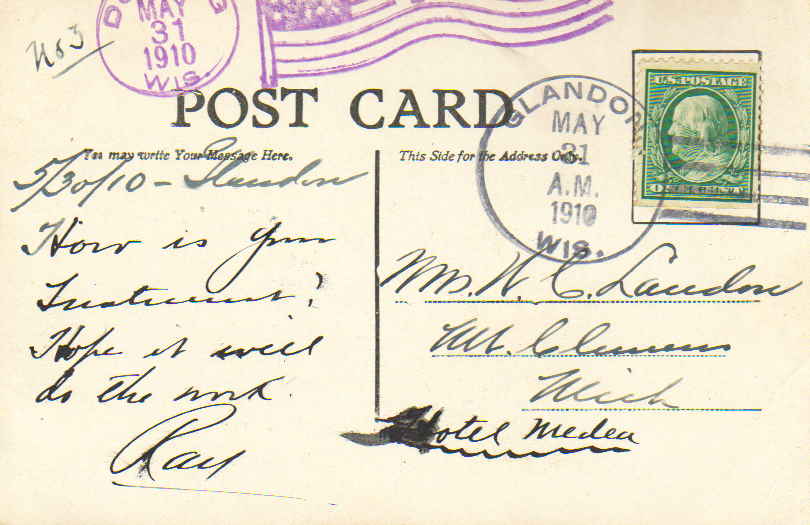 No 3
MAY
31
1910
WIS.
POST CARD
GLANDON
MAY
31
A.M.
1910
WIS.
U.S. POSTAGE
You may write Your Message Here.
This Side for the Address Only.
5/30/10 - Glandon
How is your
Instrument?
Hope it will
do the work.
Ray
Mrs. W. C. Landon
Mt. Clemens
Mich
Hotel Medea